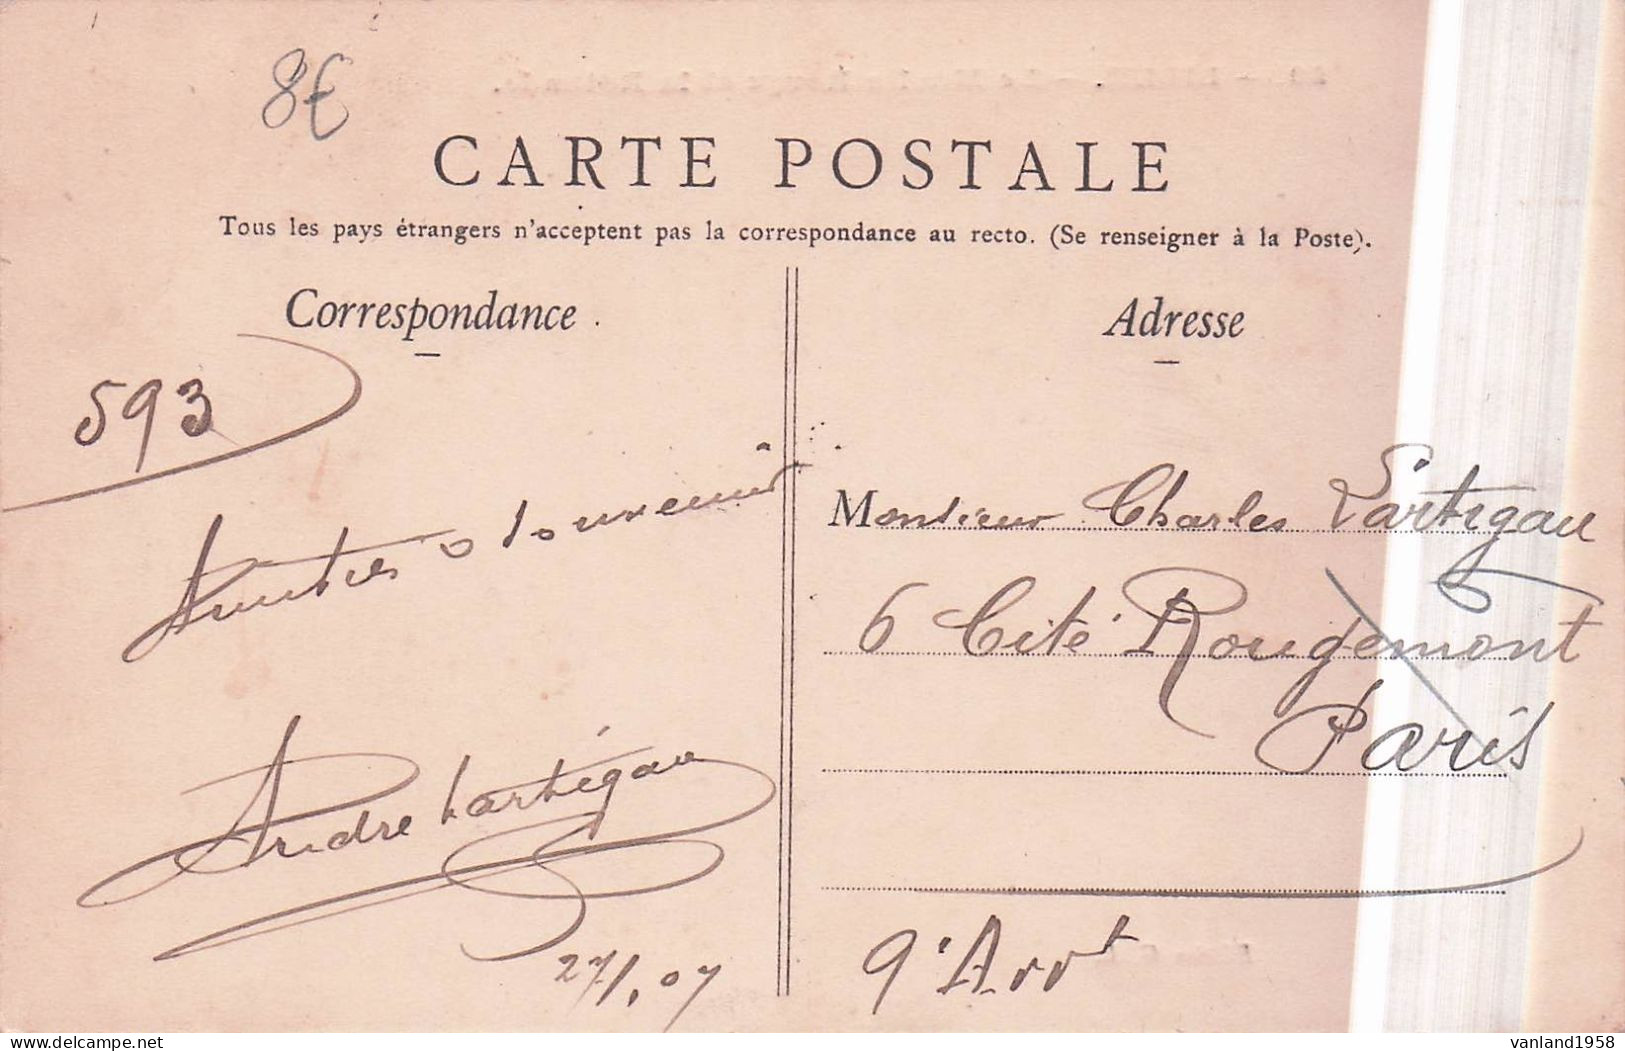 8€
CARTE POSTALE
Tous les pays étrangers n'acceptent pas la correspondance au recto. (Se renseigner à la Poste).
Correspondance
Adresse
593
souvenirs
Monsieur Charles Lartigau
6 Cité Rougemont
Paris
André Lartigau
27/1.07
9e Arrt
vanland1958